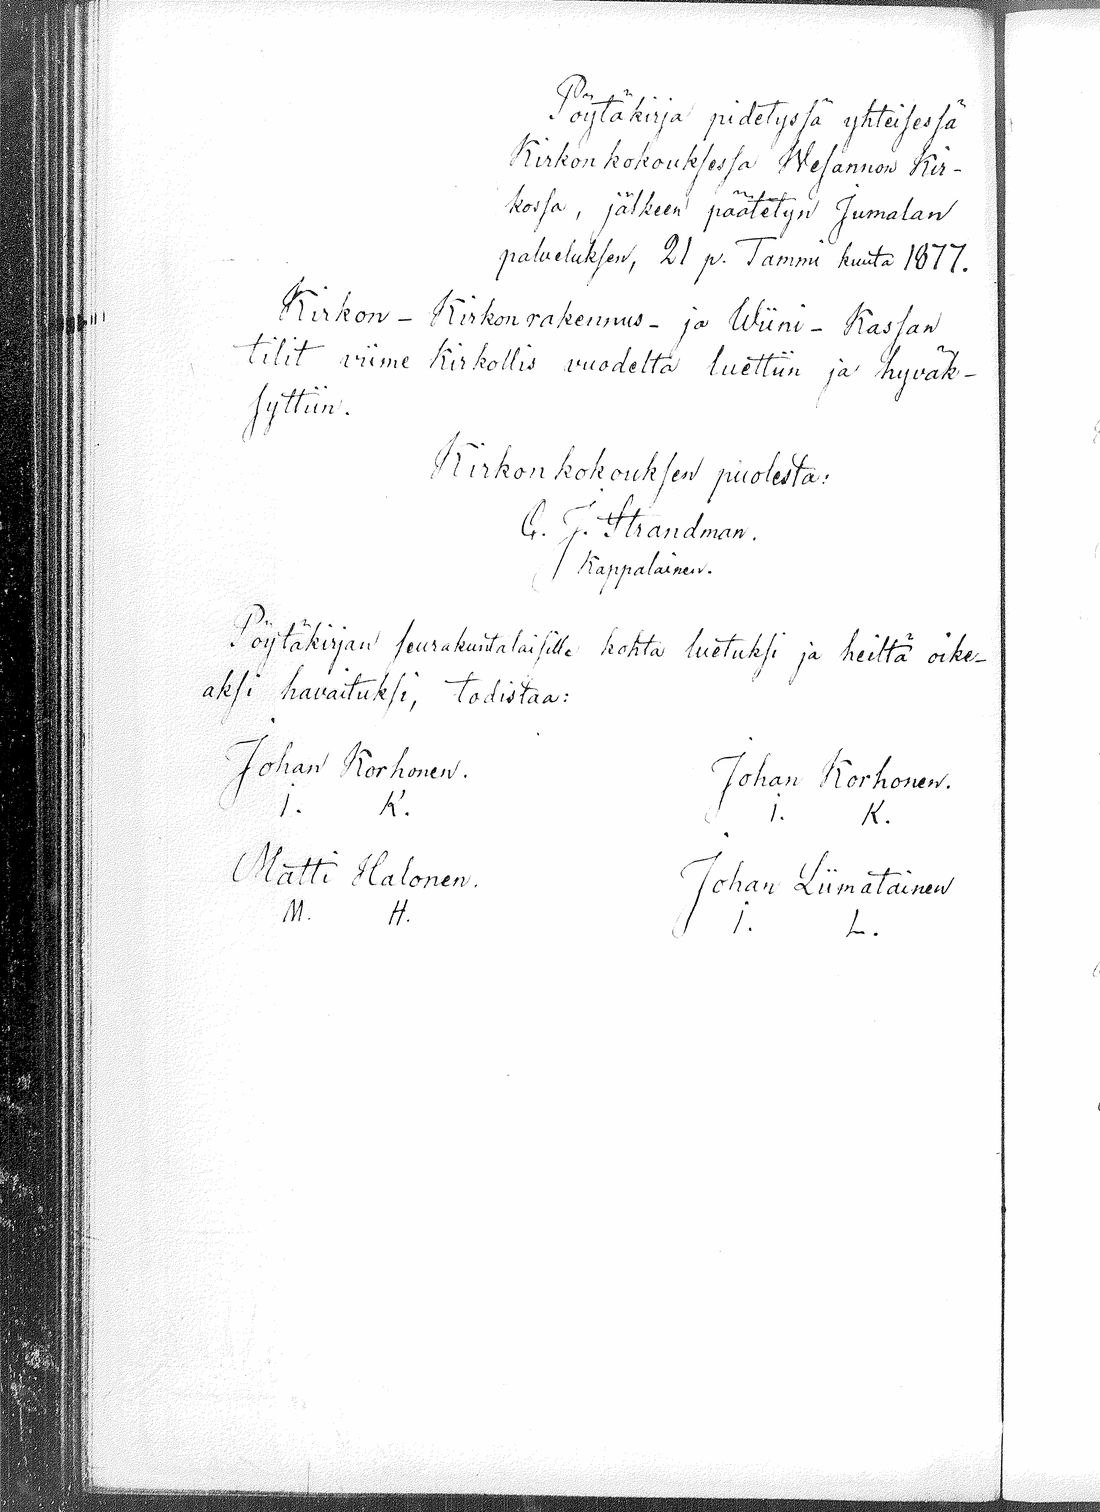 Pöytäkirja pidetyssä yhteisessä
Kirkonkokouksessa Wesannon Kir-
kossa, jälkeen päätetyn Jumalan
palveluksen, 21 p. Tammi kuuta 1877.
Kirkon- Kirkonrakennus- ja Wiini- Kassan
tilit viime Kirkollis vuodelta luettiin ja hyväk-
syttiin.
Kirkonkokouksen puolesta:
C. J. Strandman.
Kappalainen.
Pöytäkirjan seurakuntalaisille kohta luetuksi ja heiltä oike-
aksi havaituksi, todistaa:
Johan Korhonen. Johan Korhonen.
I. K. I. K.
Matti Halonen. Johan Liimatainen
M. H. I. L.